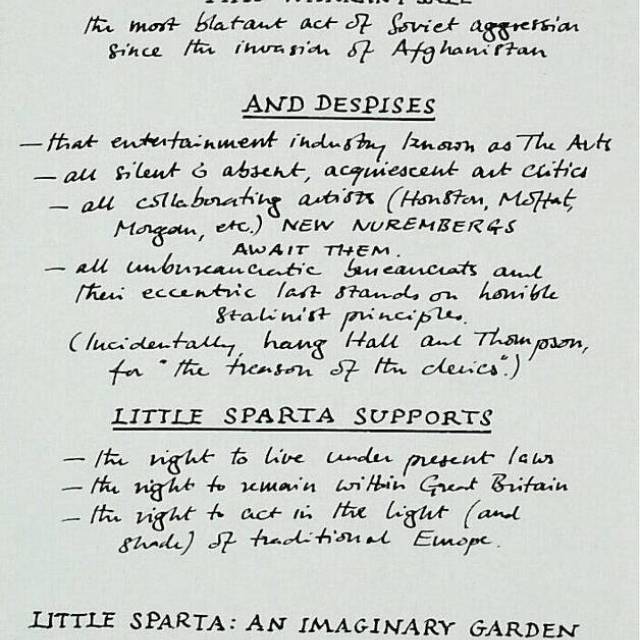 the most blatant act of Soviet aggression
since the invasion of Afghanistan
AND DESPISES
— that entertainment industry known as The Arts
— all silent & absent, acquiescent art critics
— all collaborating artists (Houston, Moffat,
Morgan, etc.) NEW NUREMBERGS
AWAIT THEM.
— all unbureaucratic bureaucrats and
their eccentric last stands on horrible
Stalinist principles.
(Incidentally, hang Hall and Thompson,
for "the treason of the clerics".)
LITTLE SPARTA SUPPORTS
— the right to live under present laws
— the right to remain within Great Britain
— the right to act in the light (and
shade) of traditional Europe.
LITTLE SPARTA: AN IMAGINARY GARDEN